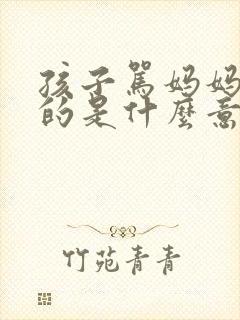 孩子駡妈妈
的是什麼意
竹苑青青